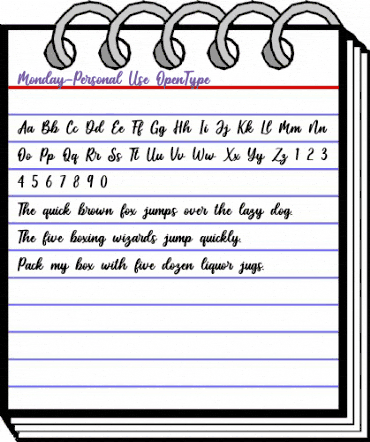 Monday-Personal Use OpenType
Aa Bb Cc Dd Ee Ff Gg Hh Ii Jj Kk Ll Mm Nn
Oo Pp Qq Rr Ss Tt Uu Vv Ww Xx Yy Zz 1 2 3
4 5 6 7 8 9 0
The quick brown fox jumps over the lazy dog.
The five boxing wizards jump quickly.
Pack my box with five dozen liquor jugs.